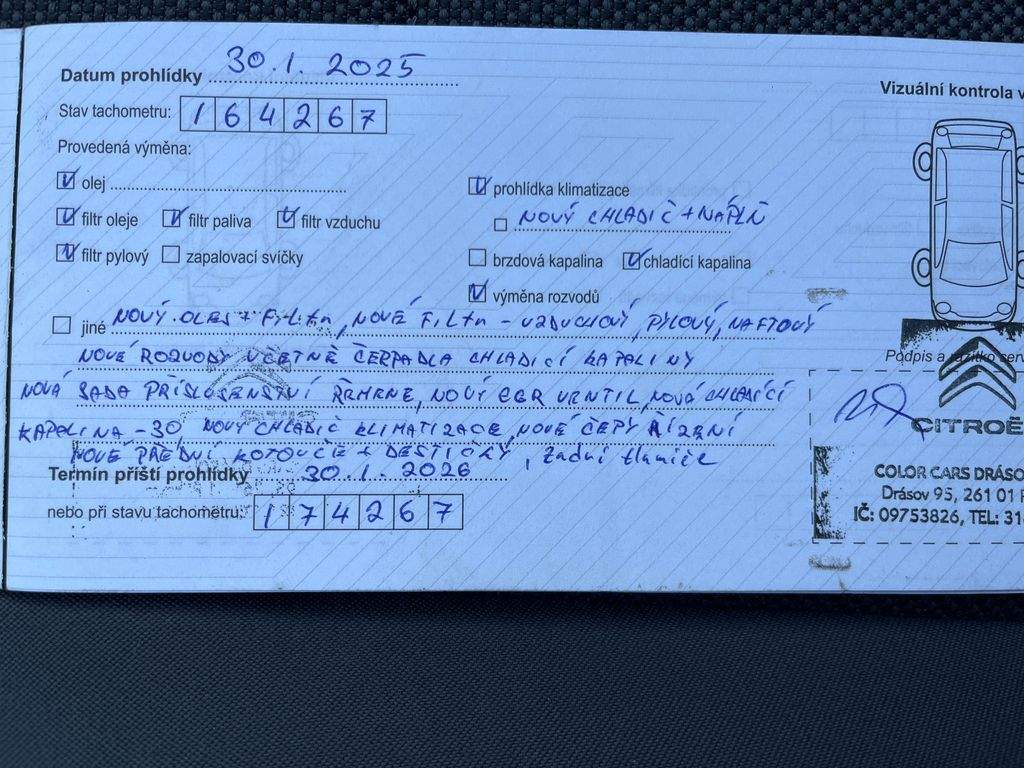 Datum prohlídky 30.1. 2025
Vizuální kontrola v
Stav tachometru: 164267
Provedená výměna:
olej
filtr oleje filtr paliva filtr vzduchu
filtr pylový zapalovací svíčky
prohlídka klimatizace
NOVÝ CHLADIČ + NÁPLŇ
brzdová kapalina chladící kapalina
výměna rozvodů
jiné NOVÝ OLEJ + FILtr, NOVÉ FILtr - VZDUCHOVÝ, PYLOVÝ, NAFTOVÝ
NOVÉ ROZVODY VČETNĚ ČERPADLA CHLADICÍ KAPALINY
NOVÁ SADA PŘÍSLUŠENSTVÍ ŘEMENE, NOVÝ EGR VENTIL, NOVÁ CHLADÍCÍ
KAPALINA -30, NOVÝ CHLADIČ KLIMATIZACE, NOVÉ ČEPY ŘÍZENÍ
NOVÉ PŘEDNÍ KOTOUČE + DESTIČKY, zadní tlumiče
Termín příští prohlídky 30.1. 2026
nebo při stavu tachometru: 174267
Podpis a razítko serv
CITROË
COLOR CARS DRÁSO
Drásov 95, 261 01 P
IČ: 09753826, TEL: 31